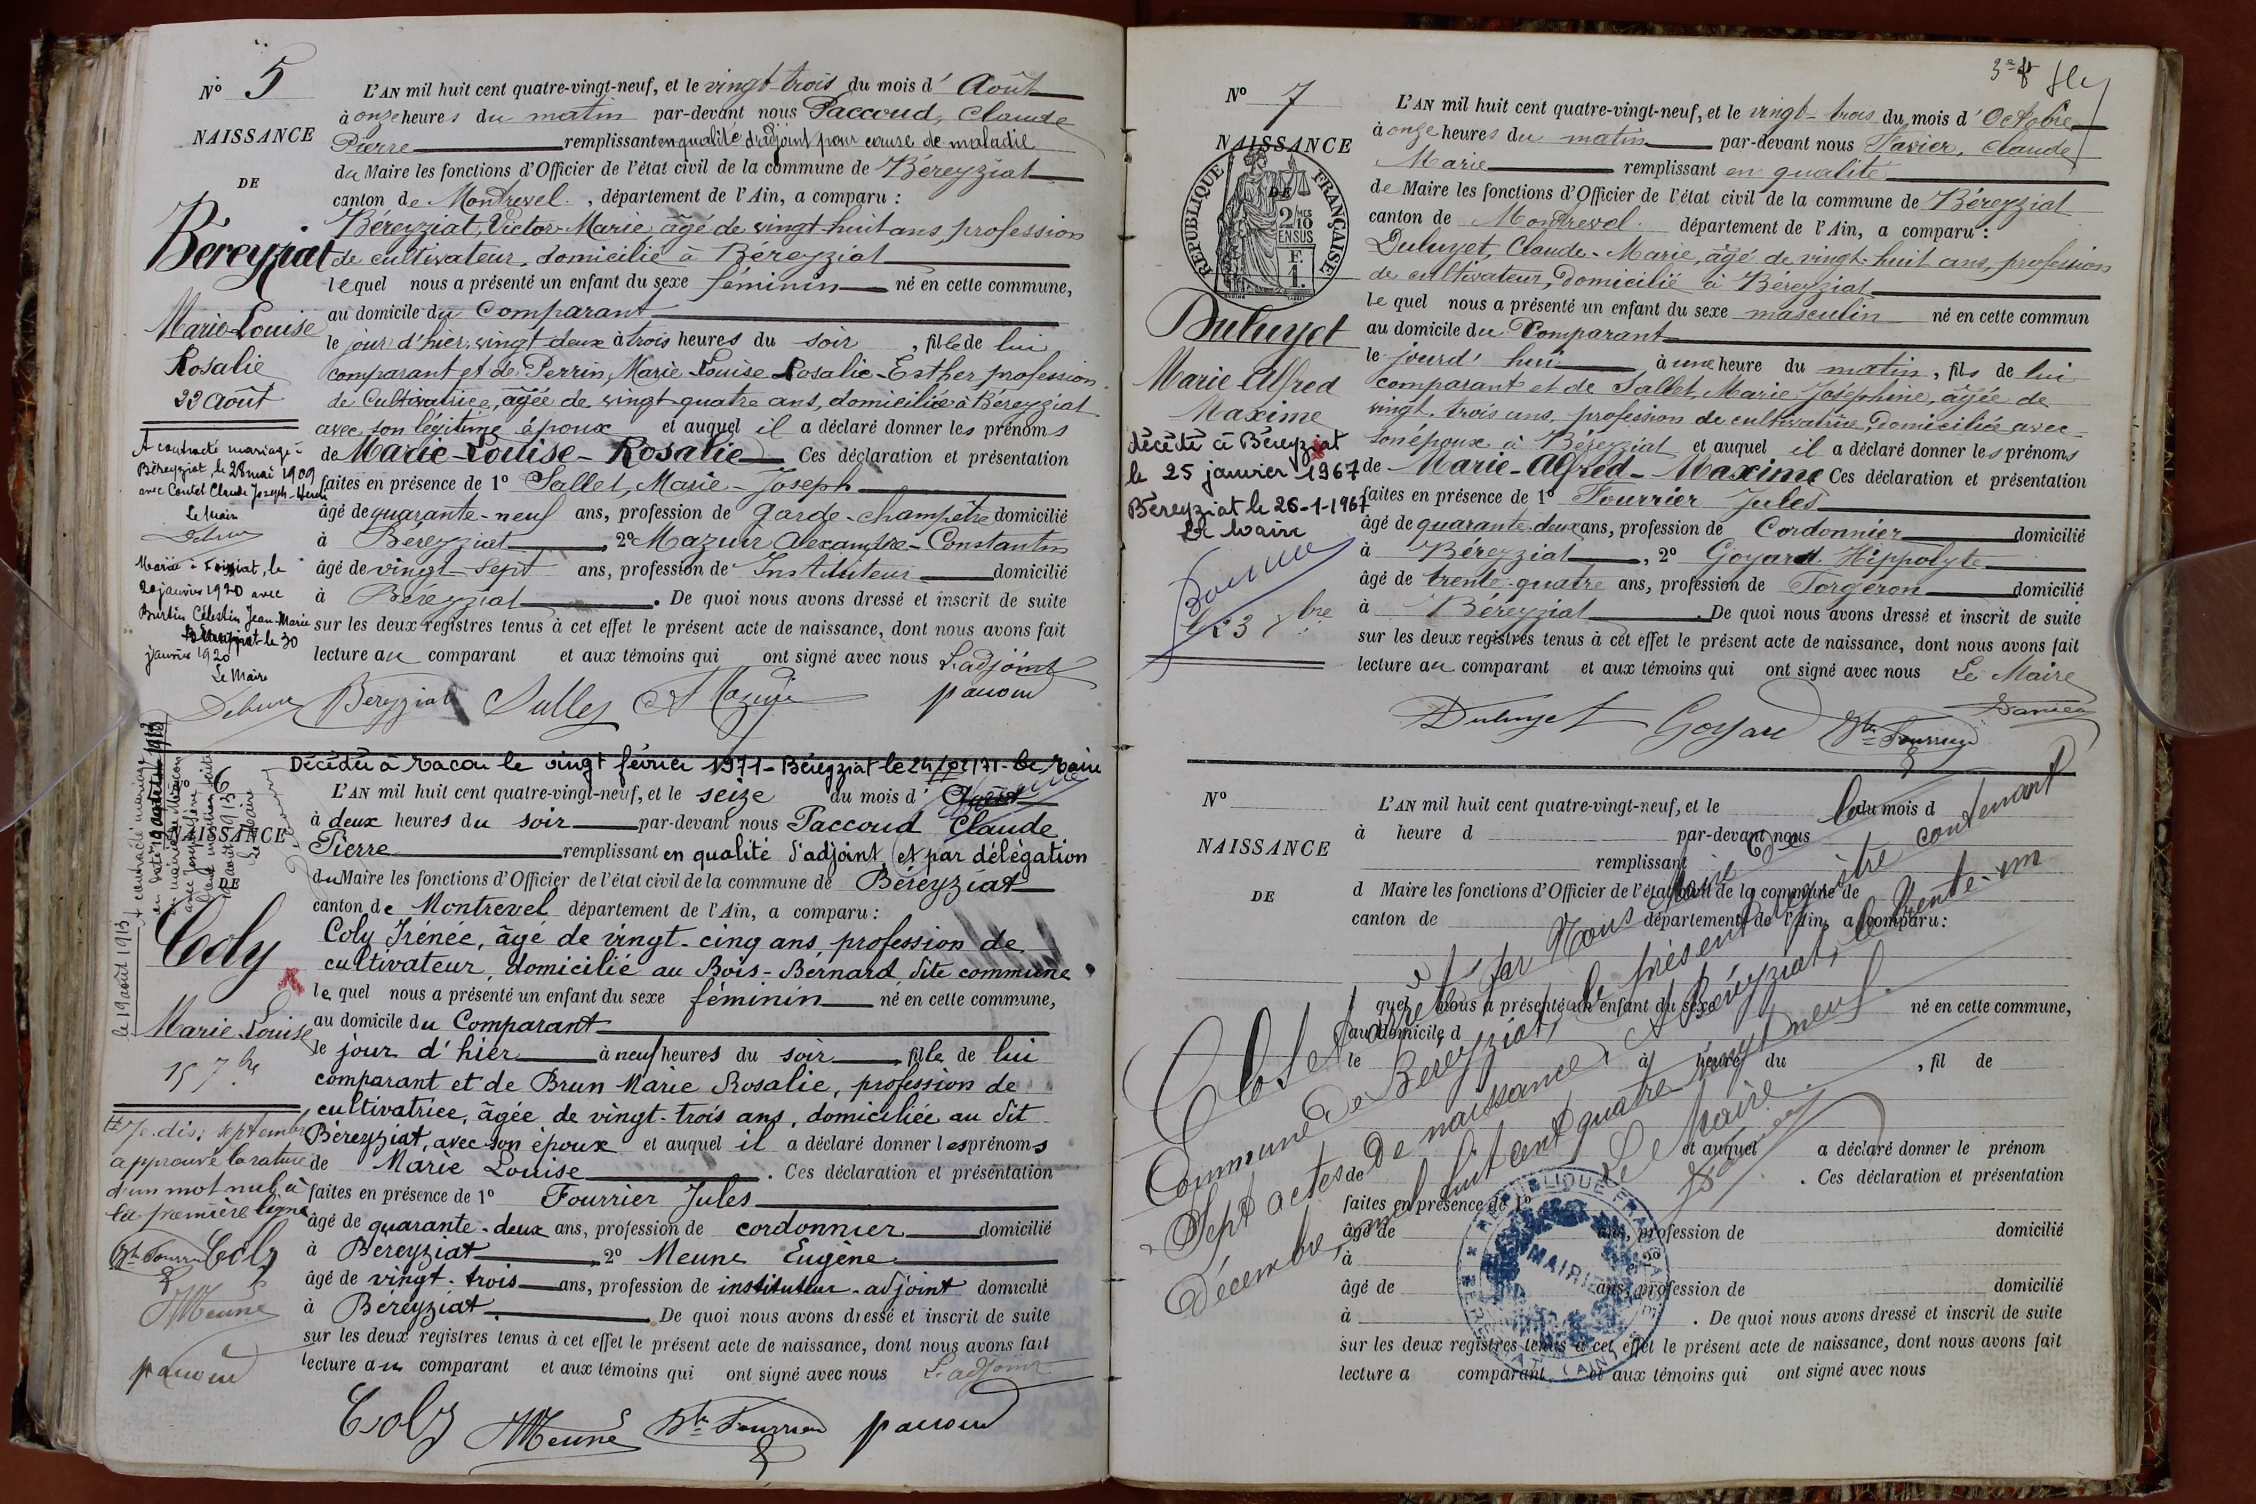 Nº 5
NAISSANCE
DE
Béreyziat
Marie-Louise
Rosalie
22 Août
A contracté mariage à
Béreyziat, le 28 mai 1909
avec Contet Claude Joseph-
Le Maire
Mariée à Foissiat, le
20 janvier 1920 avec
Burtin Célestin Jean-Marie
Béreyziat le 30
janvier 1920
Le Maire
L'AN mil huit cent quatre-vingt-neuf, et le vingt-trois du mois d'Août
à onze heures du matin par-devant nous Paccoud, Claude
Pierre remplissant en qualité d'adjoint pour cause de maladie
du Maire les fonctions d'Officier de l'état civil de la commune de Béreyziat
canton de Montrevel, département de l'Ain, a comparu :
Béreyziat, Victor-Marie, âgé de vingt-huit ans, profession
de cultivateur, domicilié à Béreyziat
lequel nous a présenté un enfant du sexe féminin né en cette commune,
au domicile du Comparant
le jour d'hier, vingt deux à trois heures du soir, fille de lui
comparant et de Perrin, Marie-Louise Rosalie-Esther, profession
de Cultivatrice, âgée de vingt-quatre ans, domiciliée à Béreyziat
avec son légitime époux et auquel il a déclaré donner les prénoms
de Marie-Louise-Rosalie Ces déclaration et présentation
faites en présence de 1º Sallet, Marie-Joseph
âgé de quarante-neuf ans, profession de garde-champêtre domicilié
à Béreyziat, 2º Mazuir Alexandre-Constantin
âgé de vingt-sept ans, profession de Instituteur domicilié
à Béreyziat. De quoi nous avons dressé et inscrit de suite
sur les deux registres tenus à cet effet le présent acte de naissance, dont nous avons fait
lecture au comparant et aux témoins qui ont signé avec nous L'adjoint
Béreyziat Sallet A Mazuir paccoud
Nº 6
NAISSANCE
DE
Coly
Marie-Louise
15 7bre
le 19 août 1913
Le Maire
Décédée à Macon le vingt février 1971 - Béreyziat le 24/02/71 - Le Maire
L'AN mil huit cent quatre-vingt-neuf, et le seize du mois d'Août
à deux heures du soir par-devant nous Paccoud Claude
Pierre remplissant en qualité d'adjoint, et par délégation
du Maire les fonctions d'Officier de l'état civil de la commune de Béreyziat
canton de Montrevel département de l'Ain, a comparu :
Coly Irénée, âgé de vingt-cinq ans, profession de
cultivateur, domicilié au Bois-Bernard dite commune
lequel nous a présenté un enfant du sexe féminin né en cette commune,
au domicile du Comparant
le jour d'hier à neuf heures du soir, fille de lui
comparant et de Brun Marie Rosalie, profession de
cultivatrice, âgée de vingt-trois ans, domiciliée au dit
Béreyziat, avec son époux et auquel il a déclaré donner les prénoms
de Marie Louise. Ces déclaration et présentation
faites en présence de 1º Fourrier Jules
âgé de quarante-deux ans, profession de cordonnier domicilié
à Béreyziat, 2º Meune Eugène
âgé de vingt-trois ans, profession de instituteur-adjoint domicilié
à Béreyziat. De quoi nous avons dressé et inscrit de suite
sur les deux registres tenus à cet effet le présent acte de naissance, dont nous avons fait
lecture au comparant et aux témoins qui ont signé avec nous L'adjoint
Je dis: septembre
approuvé la rature
d'un mot nul à
la première ligne
Coly
Meune
paccoud
Coly Meune Fourrier paccoud
Nº 7
NAISSANCE
DE
RÉPUBLIQUE FRANÇAISE
2/10 MES
EN SUS
F.
1.
Duluyet
Marie Alfred
Maxime
décédé à Béreyziat
le 25 janvier 1967
Béreyziat le 26-1-1967
Le Maire
L'AN mil huit cent quatre-vingt-neuf, et le vingt-trois du mois d'Octobre
à onze heures du matin par-devant nous Favier, Claude
Marie remplissant en qualité
de Maire les fonctions d'Officier de l'état civil de la commune de Béreyziat
canton de Montrevel département de l'Ain, a comparu :
Duluyet, Claude-Marie, âgé de vingt-huit ans, profession
de cultivateur, domicilié à Béreyziat
lequel nous a présenté un enfant du sexe masculin né en cette commun
au domicile du Comparant
le jourd'hui à une heure du matin, fils de lui
comparant et de Sallet, Marie Joséphine, âgée de
vingt-trois ans, profession de cultivatrice, domiciliée avec
son époux à Béreyziat et auquel il a déclaré donner les prénoms
de Marie-Alfred-Maxime Ces déclaration et présentation
faites en présence de 1º Fourrier Jules
âgé de quarante-deux ans, profession de Cordonnier domicilié
à Béreyziat, 2º Goyard Hippolyte
âgé de trente-quatre ans, profession de Forgeron domicilié
à Béreyziat. De quoi nous avons dressé et inscrit de suite
sur les deux registres tenus à cet effet le présent acte de naissance, dont nous avons fait
lecture au comparant et aux témoins qui ont signé avec nous Le Maire
Duluyet Goyard Fourrier Favier
Nº
NAISSANCE
DE
L'AN mil huit cent quatre-vingt-neuf, et le du mois d
à heure d par-devant nous
remplissant
d Maire les fonctions d'Officier de l'état civil de la commune de
canton de département de l'Ain, a comparu :
l quel nous a présenté un enfant du sexe né en cette commune,
au domicile d
le à heure du, fil de
et auquel a déclaré donner le prénom
de. Ces déclaration et présentation
faites en présence de 1º
âgé de ans, profession de domicilié
à 2º
âgé de ans, profession de domicilié
à. De quoi nous avons dressé et inscrit de suite
sur les deux registres tenus à cet effet le présent acte de naissance, dont nous avons fait
lecture a comparant et aux témoins qui ont signé avec nous
Clos et arrêté par Nous Maire de la
Commune de Béreyziat, le présent registre contenant
Sept actes de naissance, A Béreyziat, le trente-un
Décembre mil huit cent quatre-vingt neuf.
Le Maire
Favier
RÉPUBLIQUE FRANÇAISE
MAIRIE
BÉREYZIAT (AIN)